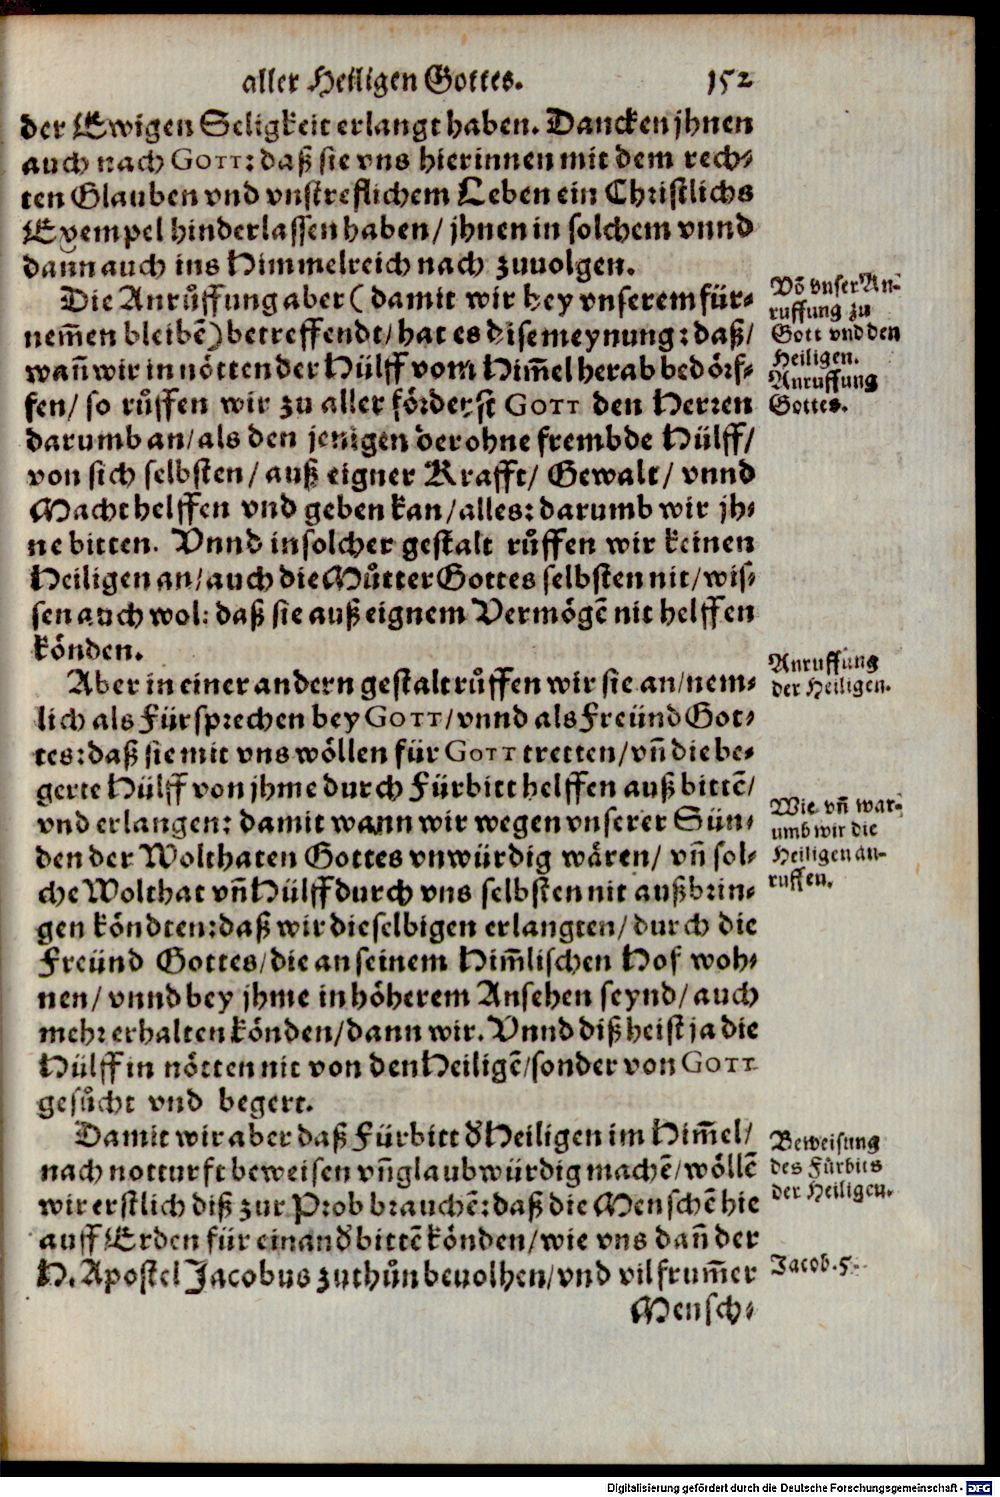 aller Heiligen Gottes. 152
der Ewigen Seligkeit erlangt haben. Dancken jhnen
auch nach GOTT: daß sie vns hierinnen mit dem rech-
ten Glauben vnd vnstreflichem Leben ein Christlichs
Exempel hinderlassen haben/ jhnen in solchem vnnd
dann auch ins Himmelreich nach zuuolgen.
Die Anrůffung aber (damit wir bey vnserem für-
nem̃en bleibē) betreffendt/ hat es dise meynung: daß/
wañ wir in nötten der Hülff vom Him̃el herab bedörf-
fen/ so růffen wir zu aller förderst GOTT den Herren
darumb an/ als den jenigen der ohne frembde Hülff/
von sich selbsten/ auß eigner Krafft/ Gewalt/ vnnd
Macht helffen vnd geben kan/ alles: darumb wir jh-
ne bitten. Vnnd in solcher gestalt růffen wir keinen
Heiligen an/ auch die Můtter Gottes selbsten nit/ wis-
sen auch wol: daß sie auß eignem Vermögē nit helffen
könden.
Aber in einer andern gestalt růffen wir sie an/ nem-
lich als Fürsprechen bey GOTT/ vnnd als Freünd Got-
tes: daß sie mit vns wöllen für GOTT tretten/ vñ die be-
gerte Hülff von jhme durch Fürbitt helffen auß bittē/
vnd erlangen: damit wann wir wegen vnserer Sün-
den der Wolthaten Gottes vnwürdig wären/ vñ sol-
che Wolthat vñ Hülff durch vns selbsten nit außbrin-
gen köndten: daß wir dieselbigen erlangten/ durch die
Freünd Gottes/ die an seinem Him̃lischen Hof woh-
nen/ vnnd bey jhme in höherem Ansehen seynd/ auch
mehr erhalten könden/ dann wir. Vnnd diß heist ja die
Hülff in nötten nit von den Heiligē/ sonder von GOTT
gesůcht vnd begert.
Damit wir aber daß Fürbitt d̓ Heiligen im Him̃el/
nach notturft beweisen vñ glaubwürdig machē/ wöllē
wir erstlich diß zur Prob brauchē: daß die Menschē hie
auff Erden für einand̓ bittē könden/ wie vns dañ der
H. Apostel Jacobus zuthůn beuolhen/ vnd vil frum̃er
Mensch-
Võ vnser An-
ruffung zu
Gott vnd den
Heiligen.
Anruffung
Gottes.
Anruffung
der Heiligen.
Wie vñ war-
umb wir die
Heiligen an-
ruffen.
Beweisung
des Fürbits
der Heiligen.
Jacob. 5.
Digitalisierung gefördert durch die Deutsche Forschungsgemeinschaft - DFG